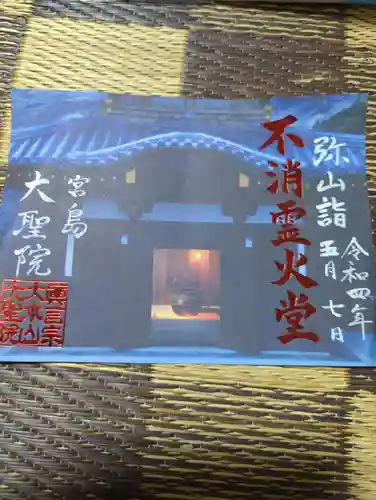 弥山詣
令和四年
五月七日
不消霊火堂
宮島
大聖院
真言宗
大本山
大聖院